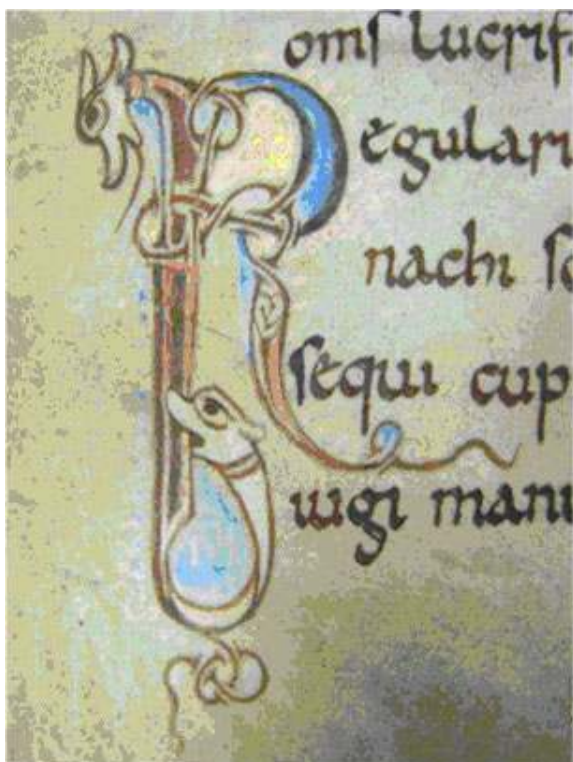 omſ lucrif
Regulari
nachi
ſequi cup
uigi manu